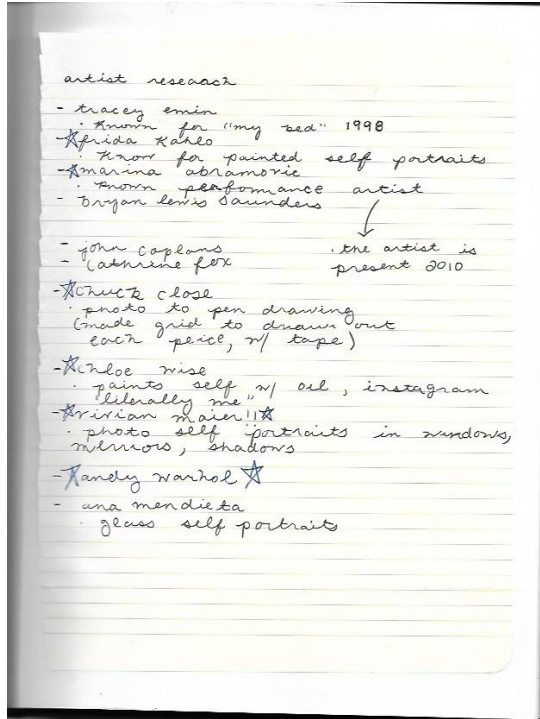 artist reseaach
- tracey emin
· Known for "my bed" 1998
-☆frida Kahlo
· Know for painted self portraits
-☆marina abramovic
· known performance artist
- bryan lewis Saunders
- john coplans
- Cathrine fox
· the artist is
present 2010
-☆Chuck close
· photo to pen drawing
(made grid to draw out
each peice, w/ tape)
-☆Chloe wise
· paints self w/ oil, instagram
"literally me"
-☆vivian maier!!☆
· photo self portraits in windows,
mirrors, shadows
-☆andy warhol☆
- ana mendieta
· glass self portraits